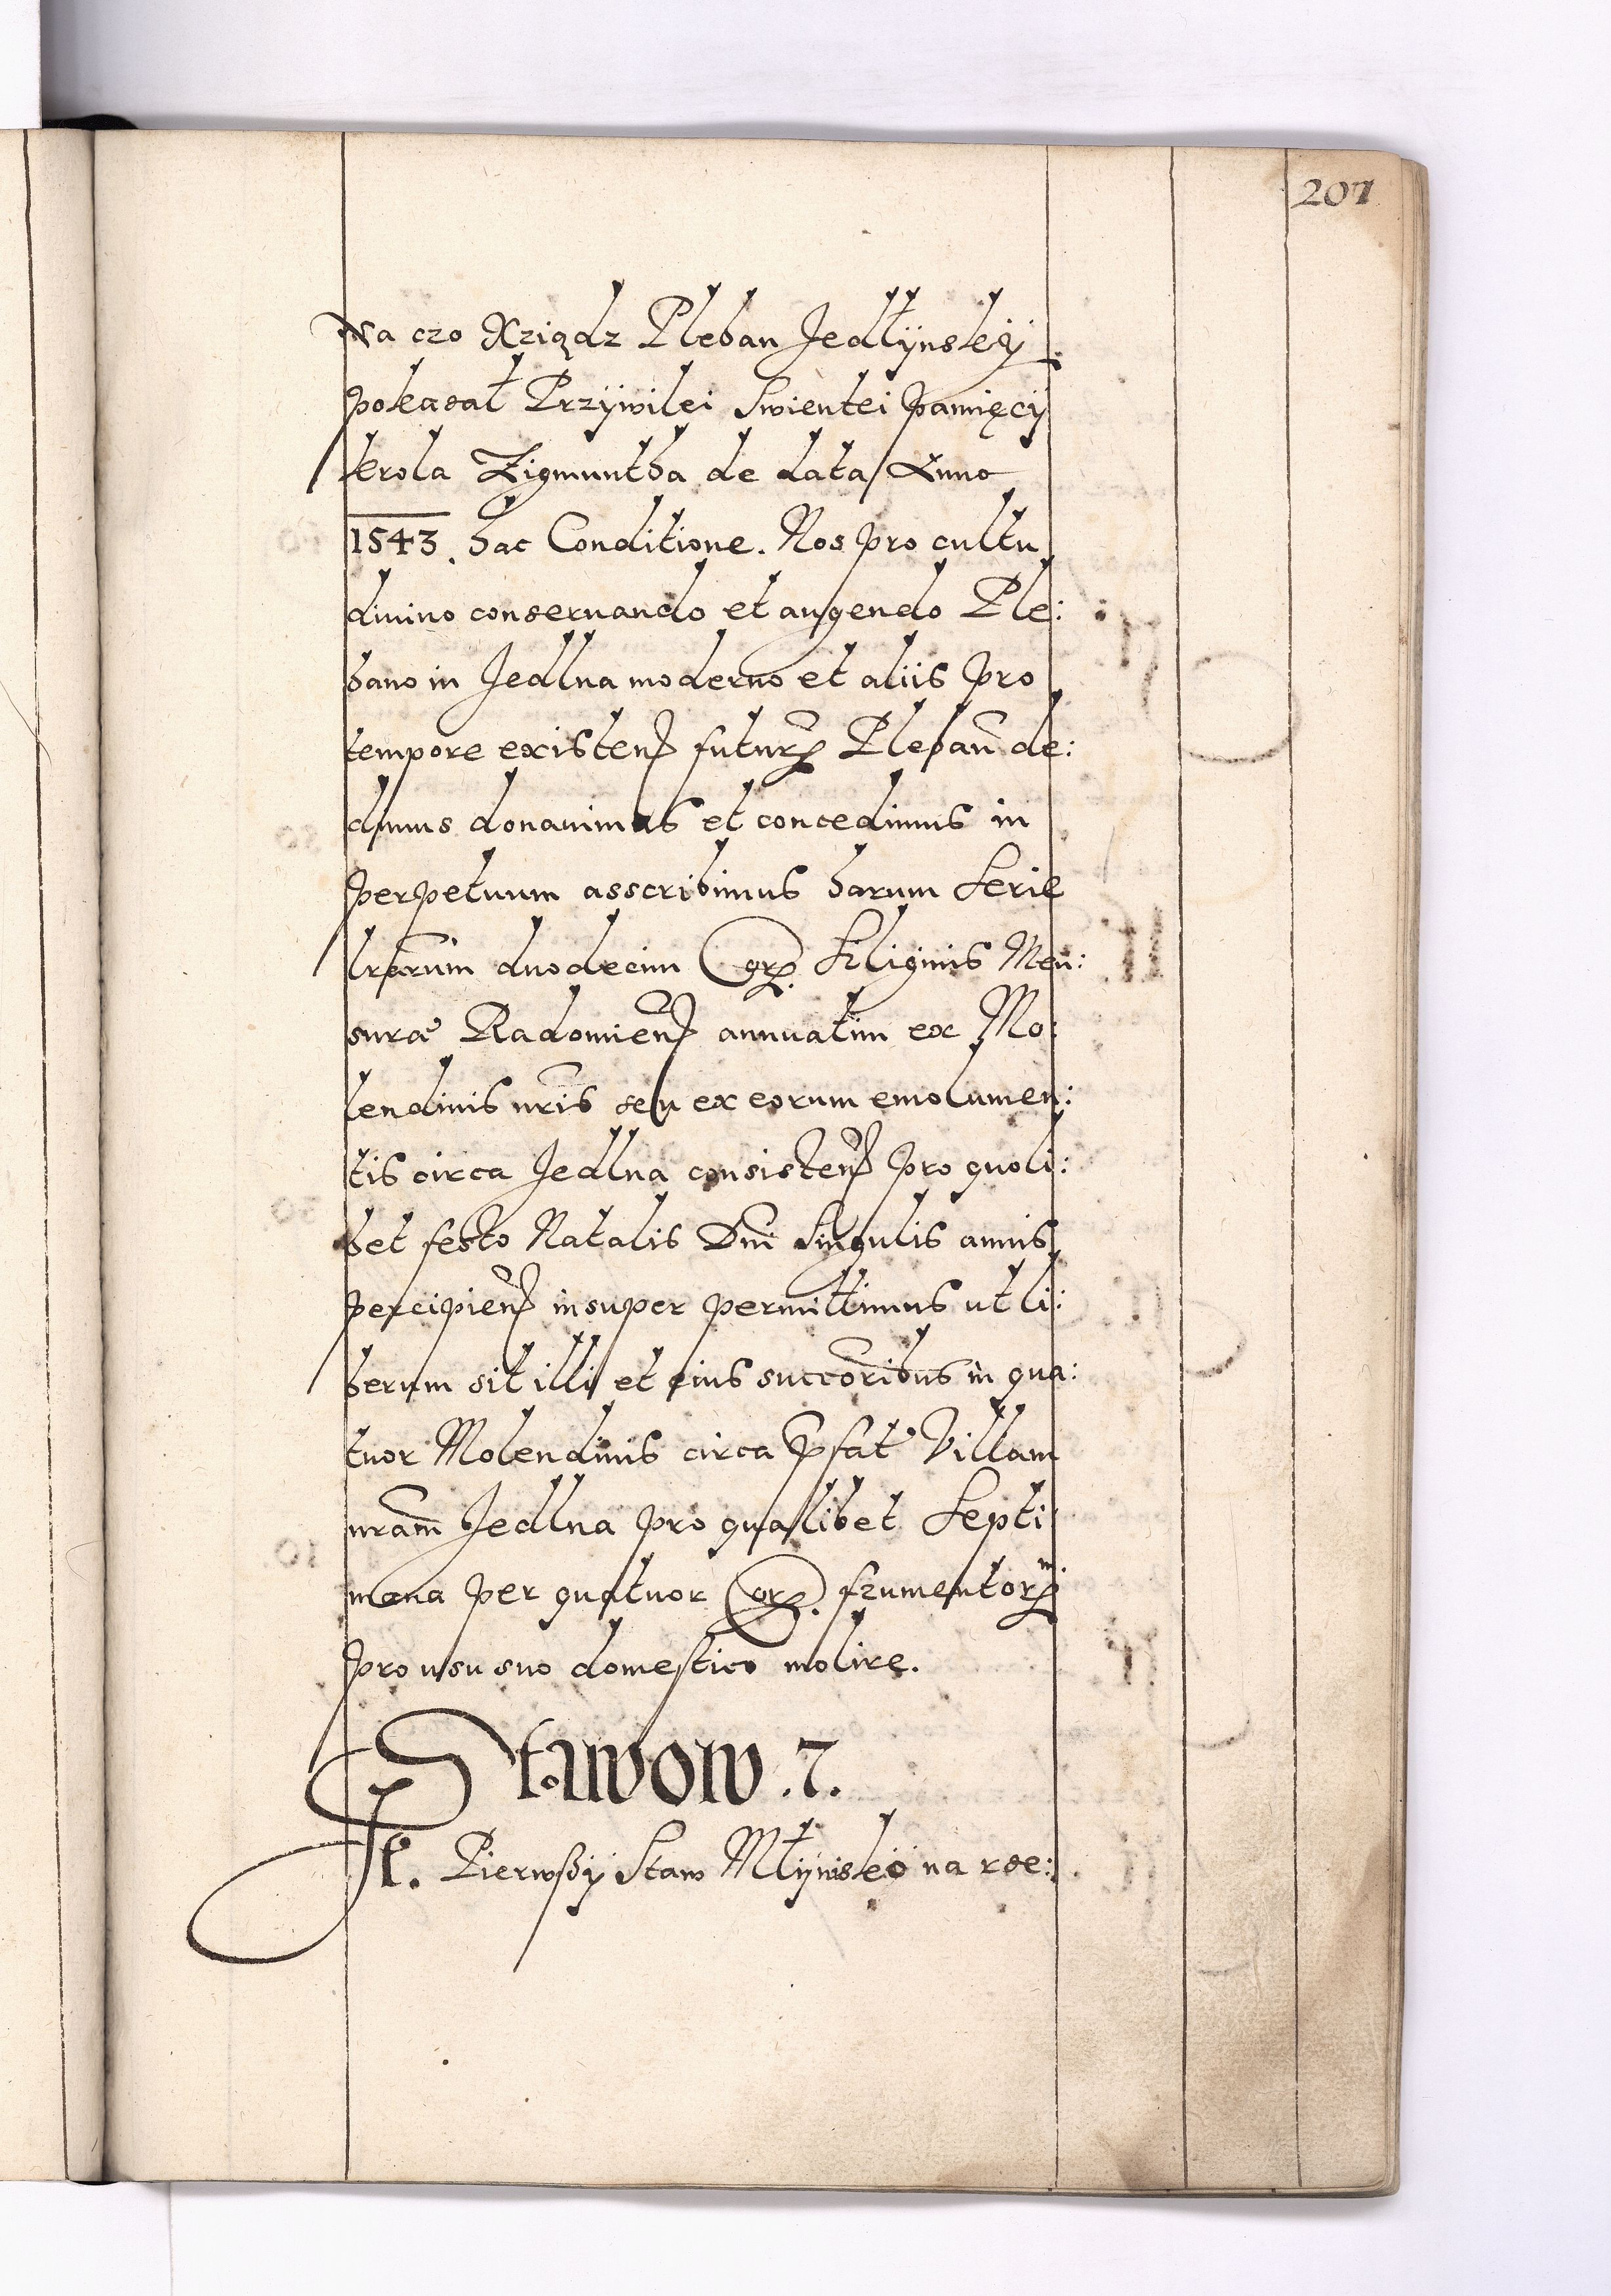 207
Na czo Xziądz Pleban Jedłÿnskÿ
pokazał Przÿwilei Swientei pamięcÿ
krola Zigmuntha de data Anno
1543. hac Conditione. Nos pro cultu
diuino conseruando et augendo Ple:
bano in Jedlna moderno et aliis pro
tempore existen futur Pleban de:
dimus donauimus et concedimus in
perpetuum asscribimus harum Serie
lrarum duodecim Cor. Siliginis Men:
suræ Radomien annuatim ex Mo:
lendinis nris seu ex eorum emolumen:
tis circa Jedlna consisten pro quoli:
bet festo Natalis Dni Singulis annis
percipien insuper permittimus ut li:
berum sit illi et eius succoribus in qua:
tuor Molendinis circa pfat Villam
nram Jedlna pro qualibet Septi
mana per quatuor Cor. frumentor
pro usu suo domestico molire.
Stawow .7.
Pierwßÿ Staw Młÿnsko na rze: